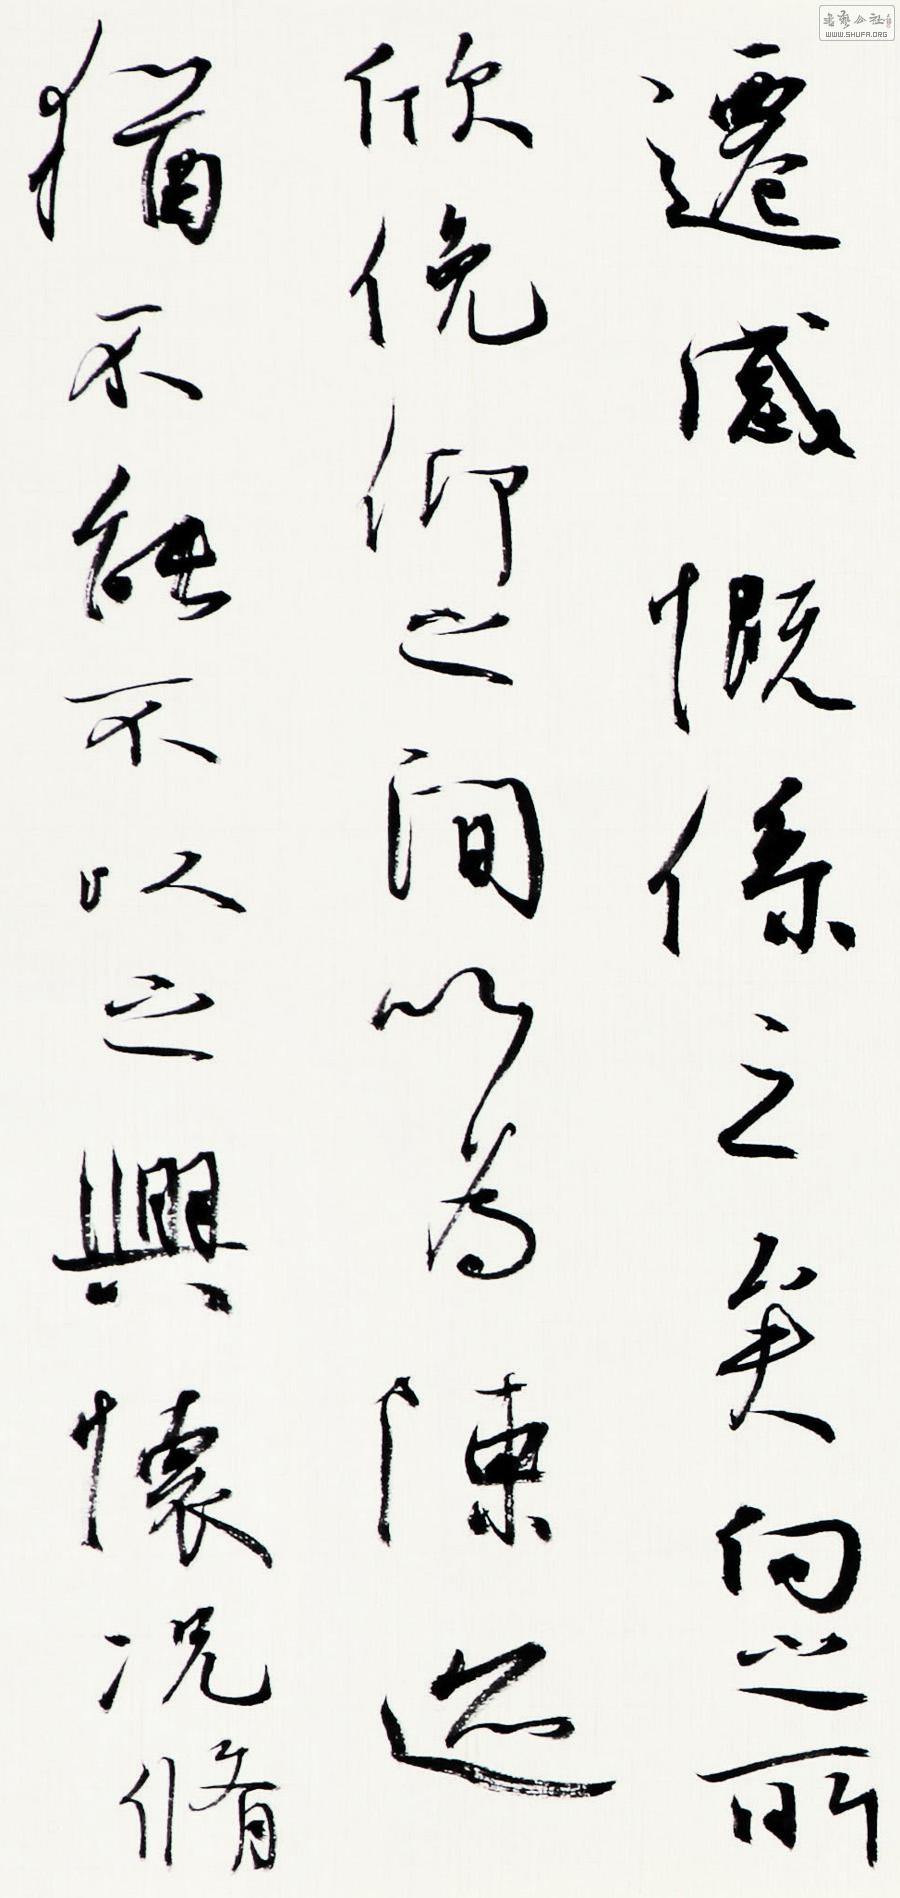 遷感慨係之矣向之所
欣俛仰之間以為陳迹
猶不能不以之興懷况脩
WWW.SHUFA.ORG